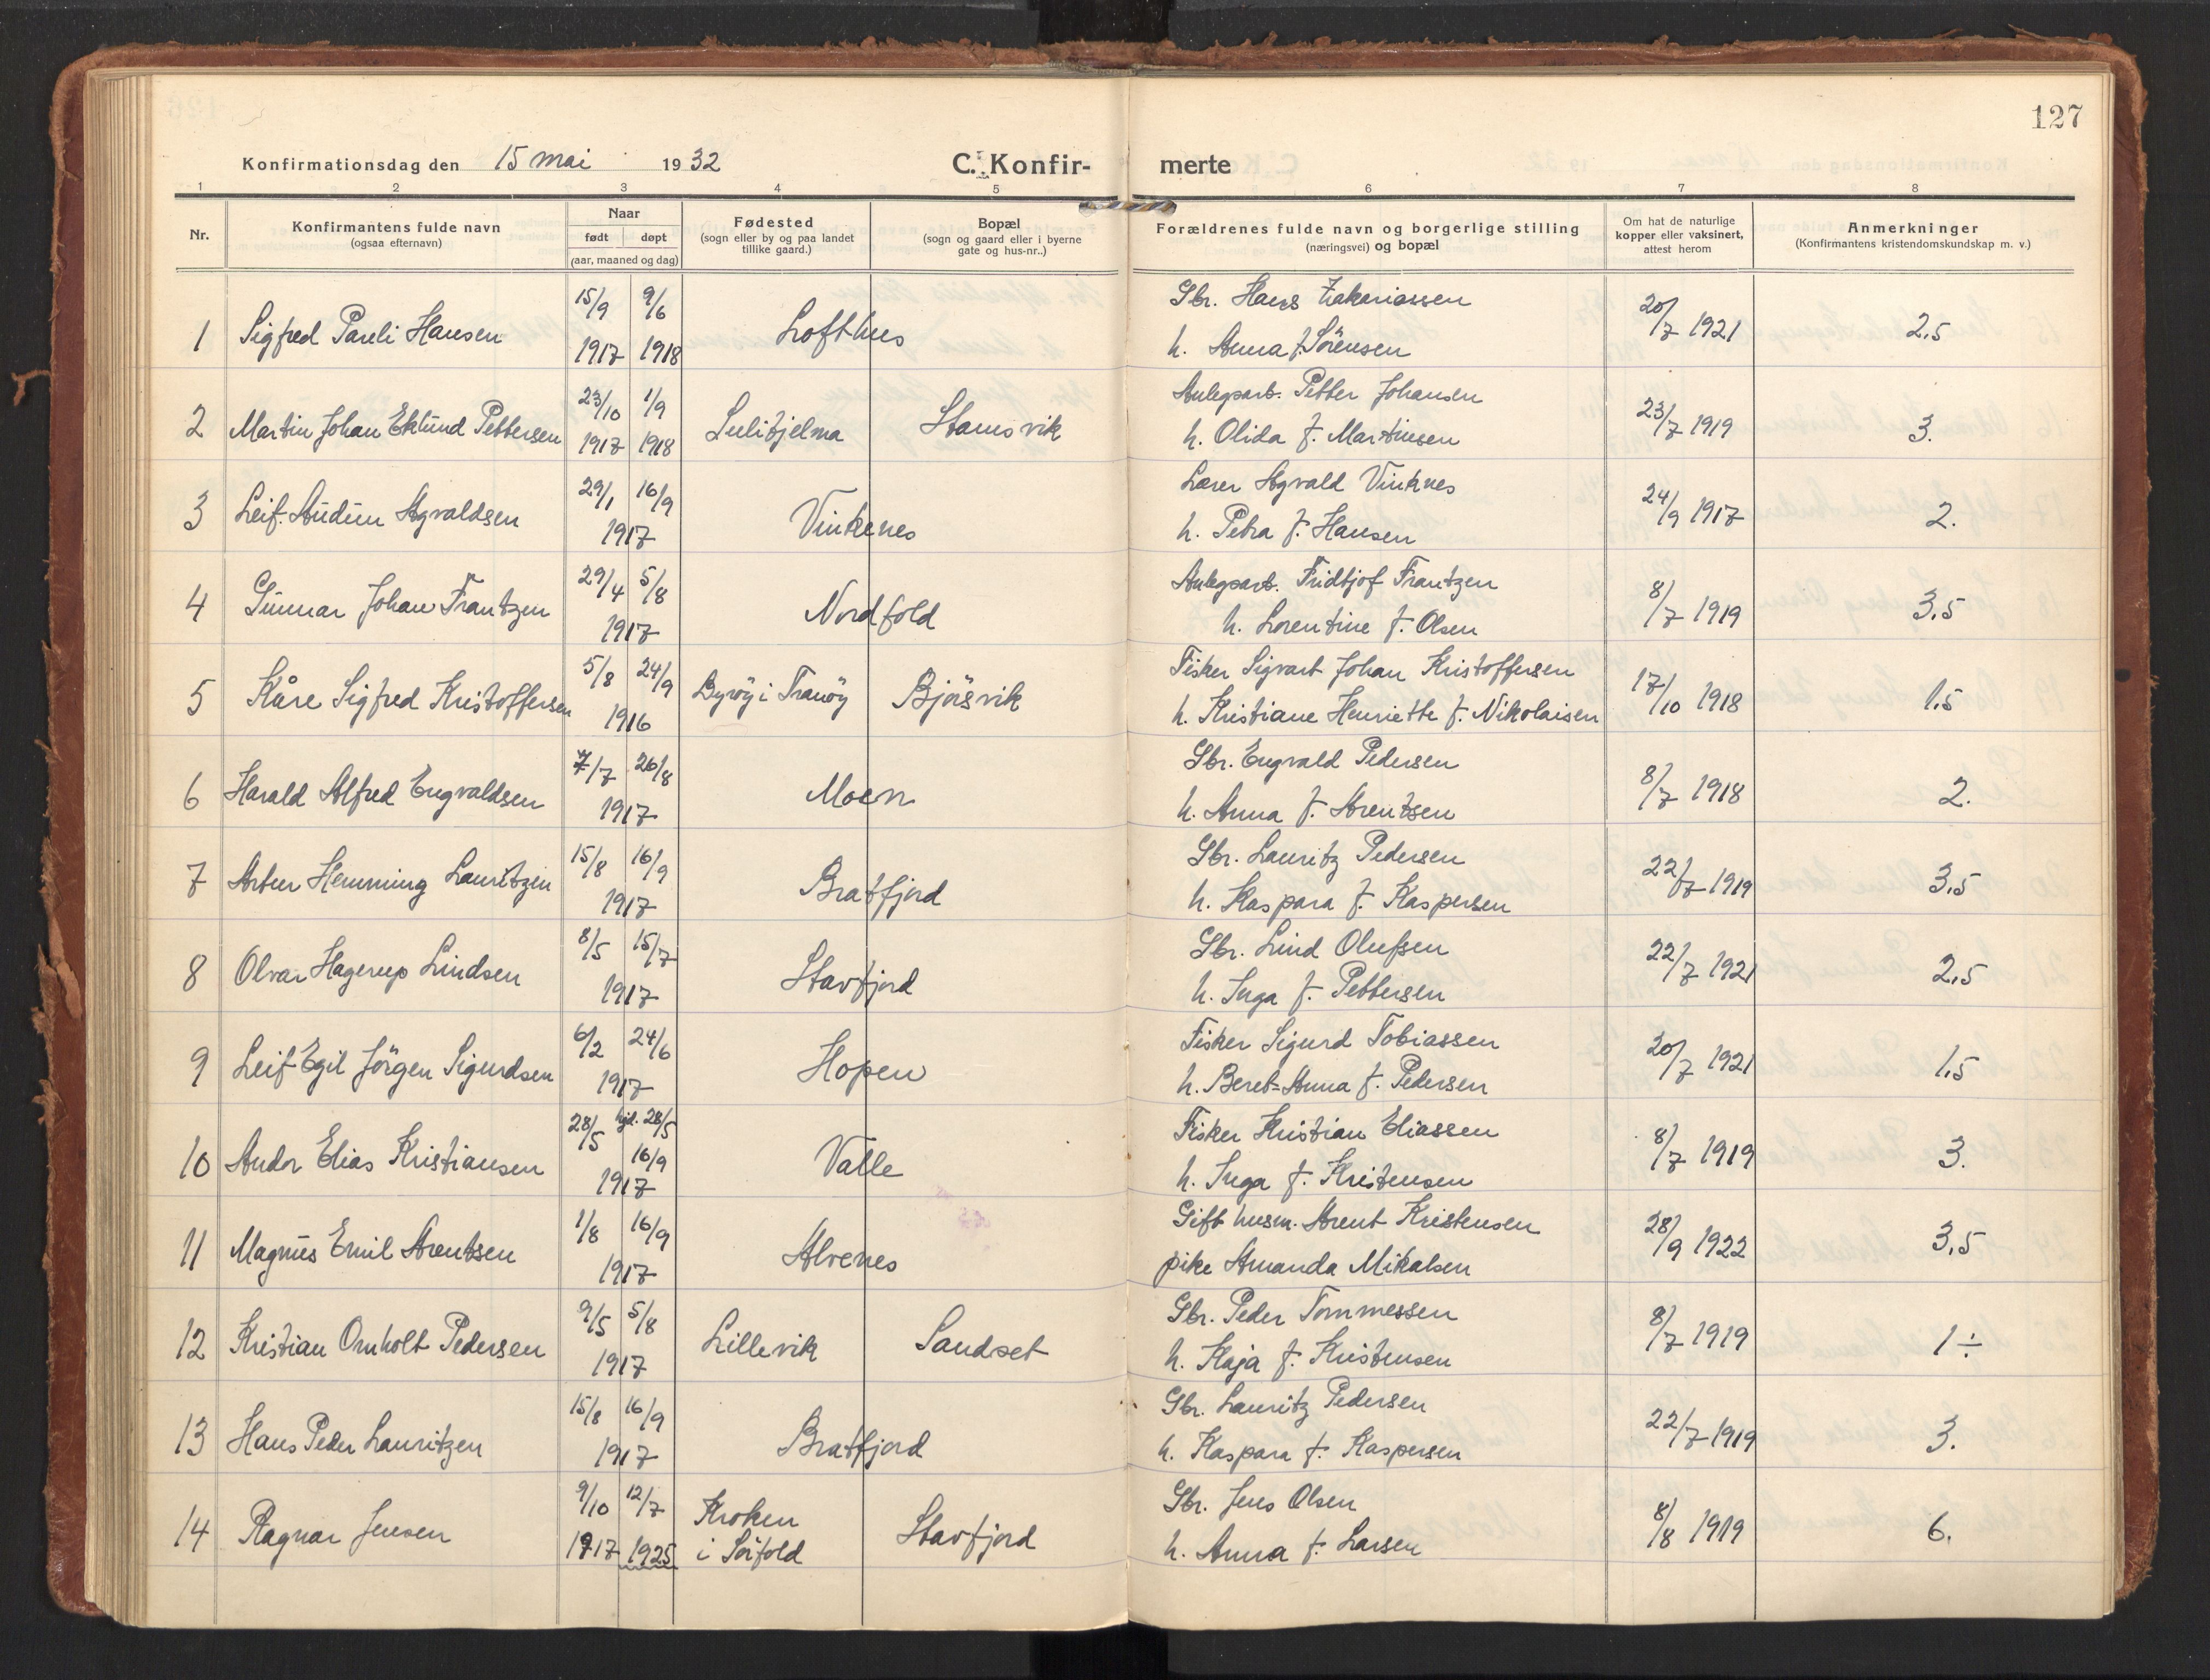 127
Konfirmationsdag den 15 mai 1932 C. Konfir- merte
1 2 3 4 5 6 7 8
Nr.
Konfirmantens fulde navn
(ogsaa efternavn)
Naar
født døpt
(aar, maaned og dag)
Fødested
(sogn eller by og paa landet
tillike gaard.)
Bopæl
(sogn og gaard eller i byerne
gate og hus-nr..)
Forældrenes fulde navn og borgerlige stilling
(næringsvei) og bopæl
Om hat de naturlige
kopper eller vaksinert,
attest herom
Anmerkninger
(Konfirmantens kristendomskundskap m. v.)
15/9 9/6 Gbr. Hans Zakariassen
1 Sigfred Pareli Hansen 1917 1918 Lofthus h. Anna f. Sörensen 20/7 1921 2,5
23/10 1/9 Anlegsarb. Petter Johansen
2 Martin Johan Eklund Pettersen 1917 1918 Sulitjelma Stamsvik h. Olida f. Martinsen 23/7 1919 3.
29/1 16/9 Lærer Agvald Vinknes
3 Leif Audun Agvaldsen 1917 Vinkenes h. Petra f. Hansen 24/9 1917 2.
29/4 5/8 Anlegsarb. Fridtjof Frantzen
4 Gunnar Johan Frantzen 1917 Nordfold h. Lorentine f. Olsen 8/7 1919 3,5
5/8 24/9 Fisker Sigvart Johan Kristoffersen
5 Kåre Sigfred Kristoffersen 1916 Byröy i Tranöy Björsvik h. Kristiane Henriette f. Nikolaisen 17/10 1918 1,5
7/7 26/8 Gbr. Engvald Pedersen
6 Harald Alfred Engvaldsen 1917 Moen h. Anna f. Arentsen 8/7 1918 2.
15/8 16/9 Gbr. Lauritz Pedersen
7 Artur Hemming Lauritzen 1917 Bratfjord h. Kaspara f. Kaspersen 22/7 1919 3,5
8/5 15/7 Gbr. Lind Olufsen
8 Olvar Hagerup Lindsen 1917 Stavfjord h. Inga f. Pettersen 22/7 1921 2,5
6/2 24/6 Fisker Sigurd Tobiassen
9 Leif Egil Jörgen Sigurdsen 1917 Hopen h. Beret-Anna f. Pedersen 20/7 1921 1,5
28/5 hjd. 28/5 16/9 Fisker Kristian Eliassen
10 Andor Elias Kristiansen 1917 Valle h. Inga f. Kristensen 8/7 1919 3.
1/8 16/9 Gift husm. Arent Kristensen
11 Magnus Emil Arentsen 1917 Alvenes pike Amanda Mikalsen 28/9 1922 3,5
9/5 5/8 Gbr. Peder Tommessen
12 Kristian Omholt Pedersen 1917 Lillevik Sandset h. Kaja f. Kristensen 8/7 1919 1÷
15/8 16/9 Gbr. Lauritz Pedersen
13 Hans Peder Lauritzen 1917 Bratfjord h. Kaspara f. Kaspersen 22/7 1919 3.
9/10 12/7 Kroken Gbr. Jens Olsen
14 Ragnar Jensen 1917 1925 i Sörfold Stavfjord h. Anna f. Larsen 8/8 1919 6.